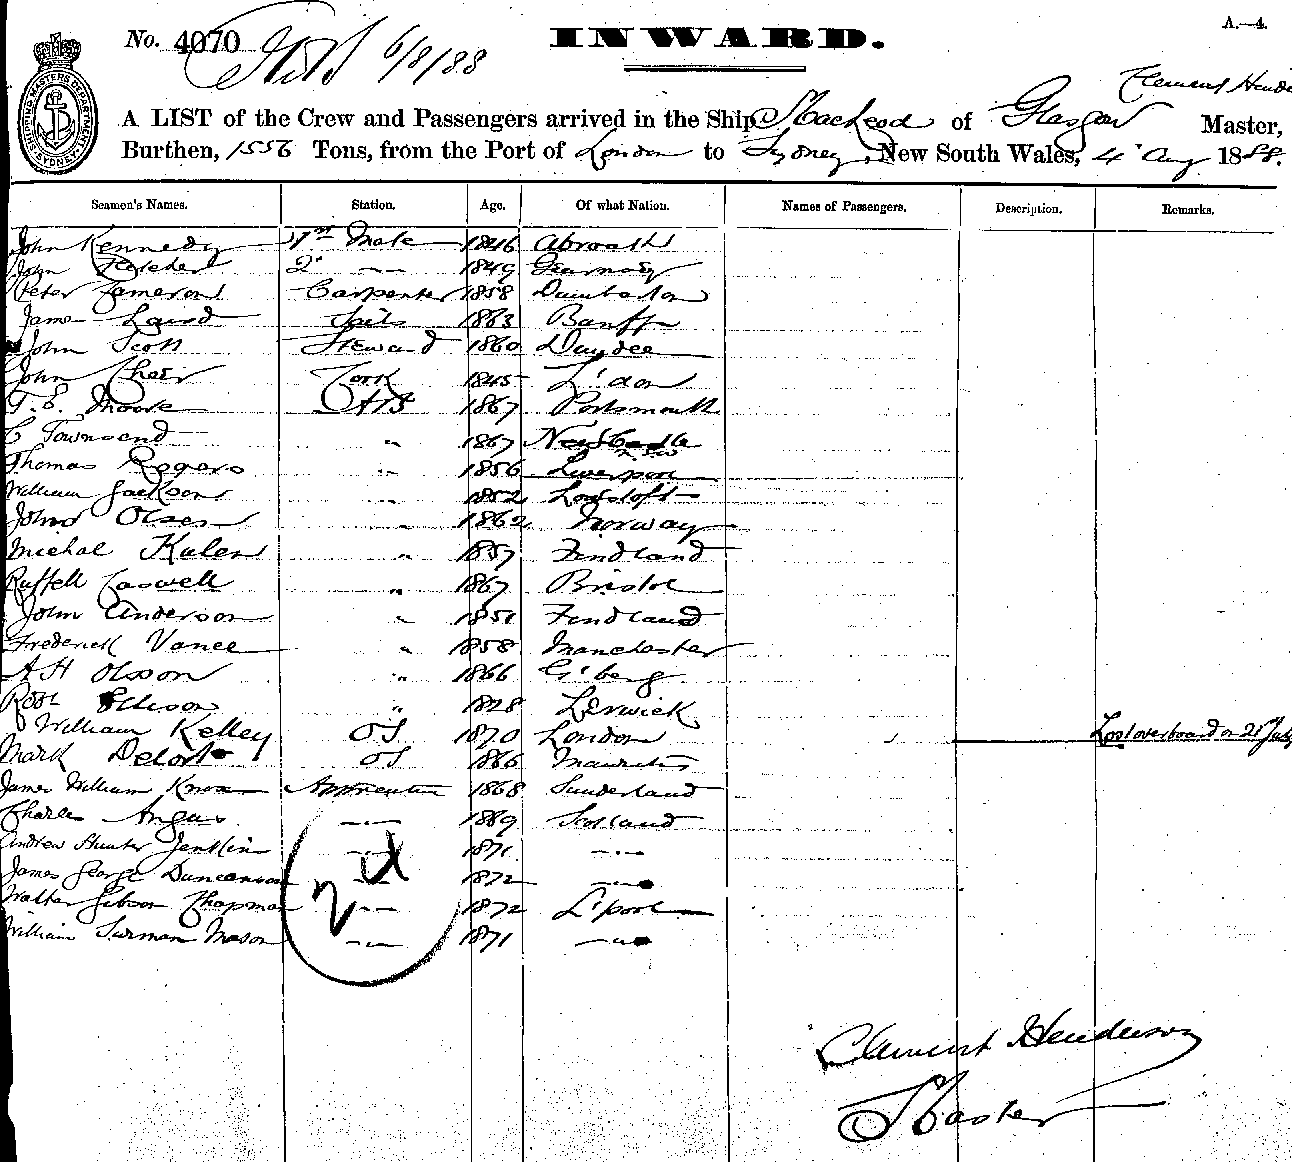 A.—4.
No. 4070 6/8/88 INWARD.
SHIPPING MASTERS DEPARTMENT SYDNEY
Clement Hende
A LIST of the Crew and Passengers arrived in the Ship MacLeod of Glasgow Master,
Burthen, 1556 Tons, from the Port of London to Sydney, New South Wales, 4 Aug 1888.
Seamen's Names. Station. Age. Of what Nation. Names of Passengers. Description. Remarks.
John Kennedy 1st Mate 1846 Abroath
John Fletcher 2 " 1849 Guernsey
Peter Cameron Carpenter 1858 Dumbarton
James Laird Sails 1863 Banff
John Scott Steward 1860 Dundee
John Cook 1845 L'don
T. E. Moore AB 1867 Portsmouth
C Townsend " 1867 Newcastle
Thomas Rogers " 1856 Liverpool
William Jackson " 1852 Lowstoft
John Olsen " 1862 Norway
Michal Kalen " 1857 Findland
Russell Caswell " 1867 Bristol
John Anderson " 1851 Findland
Frederick Vance " 1858 Manchester
A H Olsson " 1866 G'berg
Robt Ellison " 1828 Lerwick
William Kelley OS 1870 London Lost overboard on 21 July
Mark Delort OS 1866 Mauritius
James William Knox Apprentice 1868 Sunderland
Charles Angus " 1869 Scotland
Andrew Hunter Jenklin " 1871 "
James George Duncanson " 1872 "
Walter Gibson Chapman " 1872 L'pool
William Surman Mason " 1871 "
Clement Henderson
Master